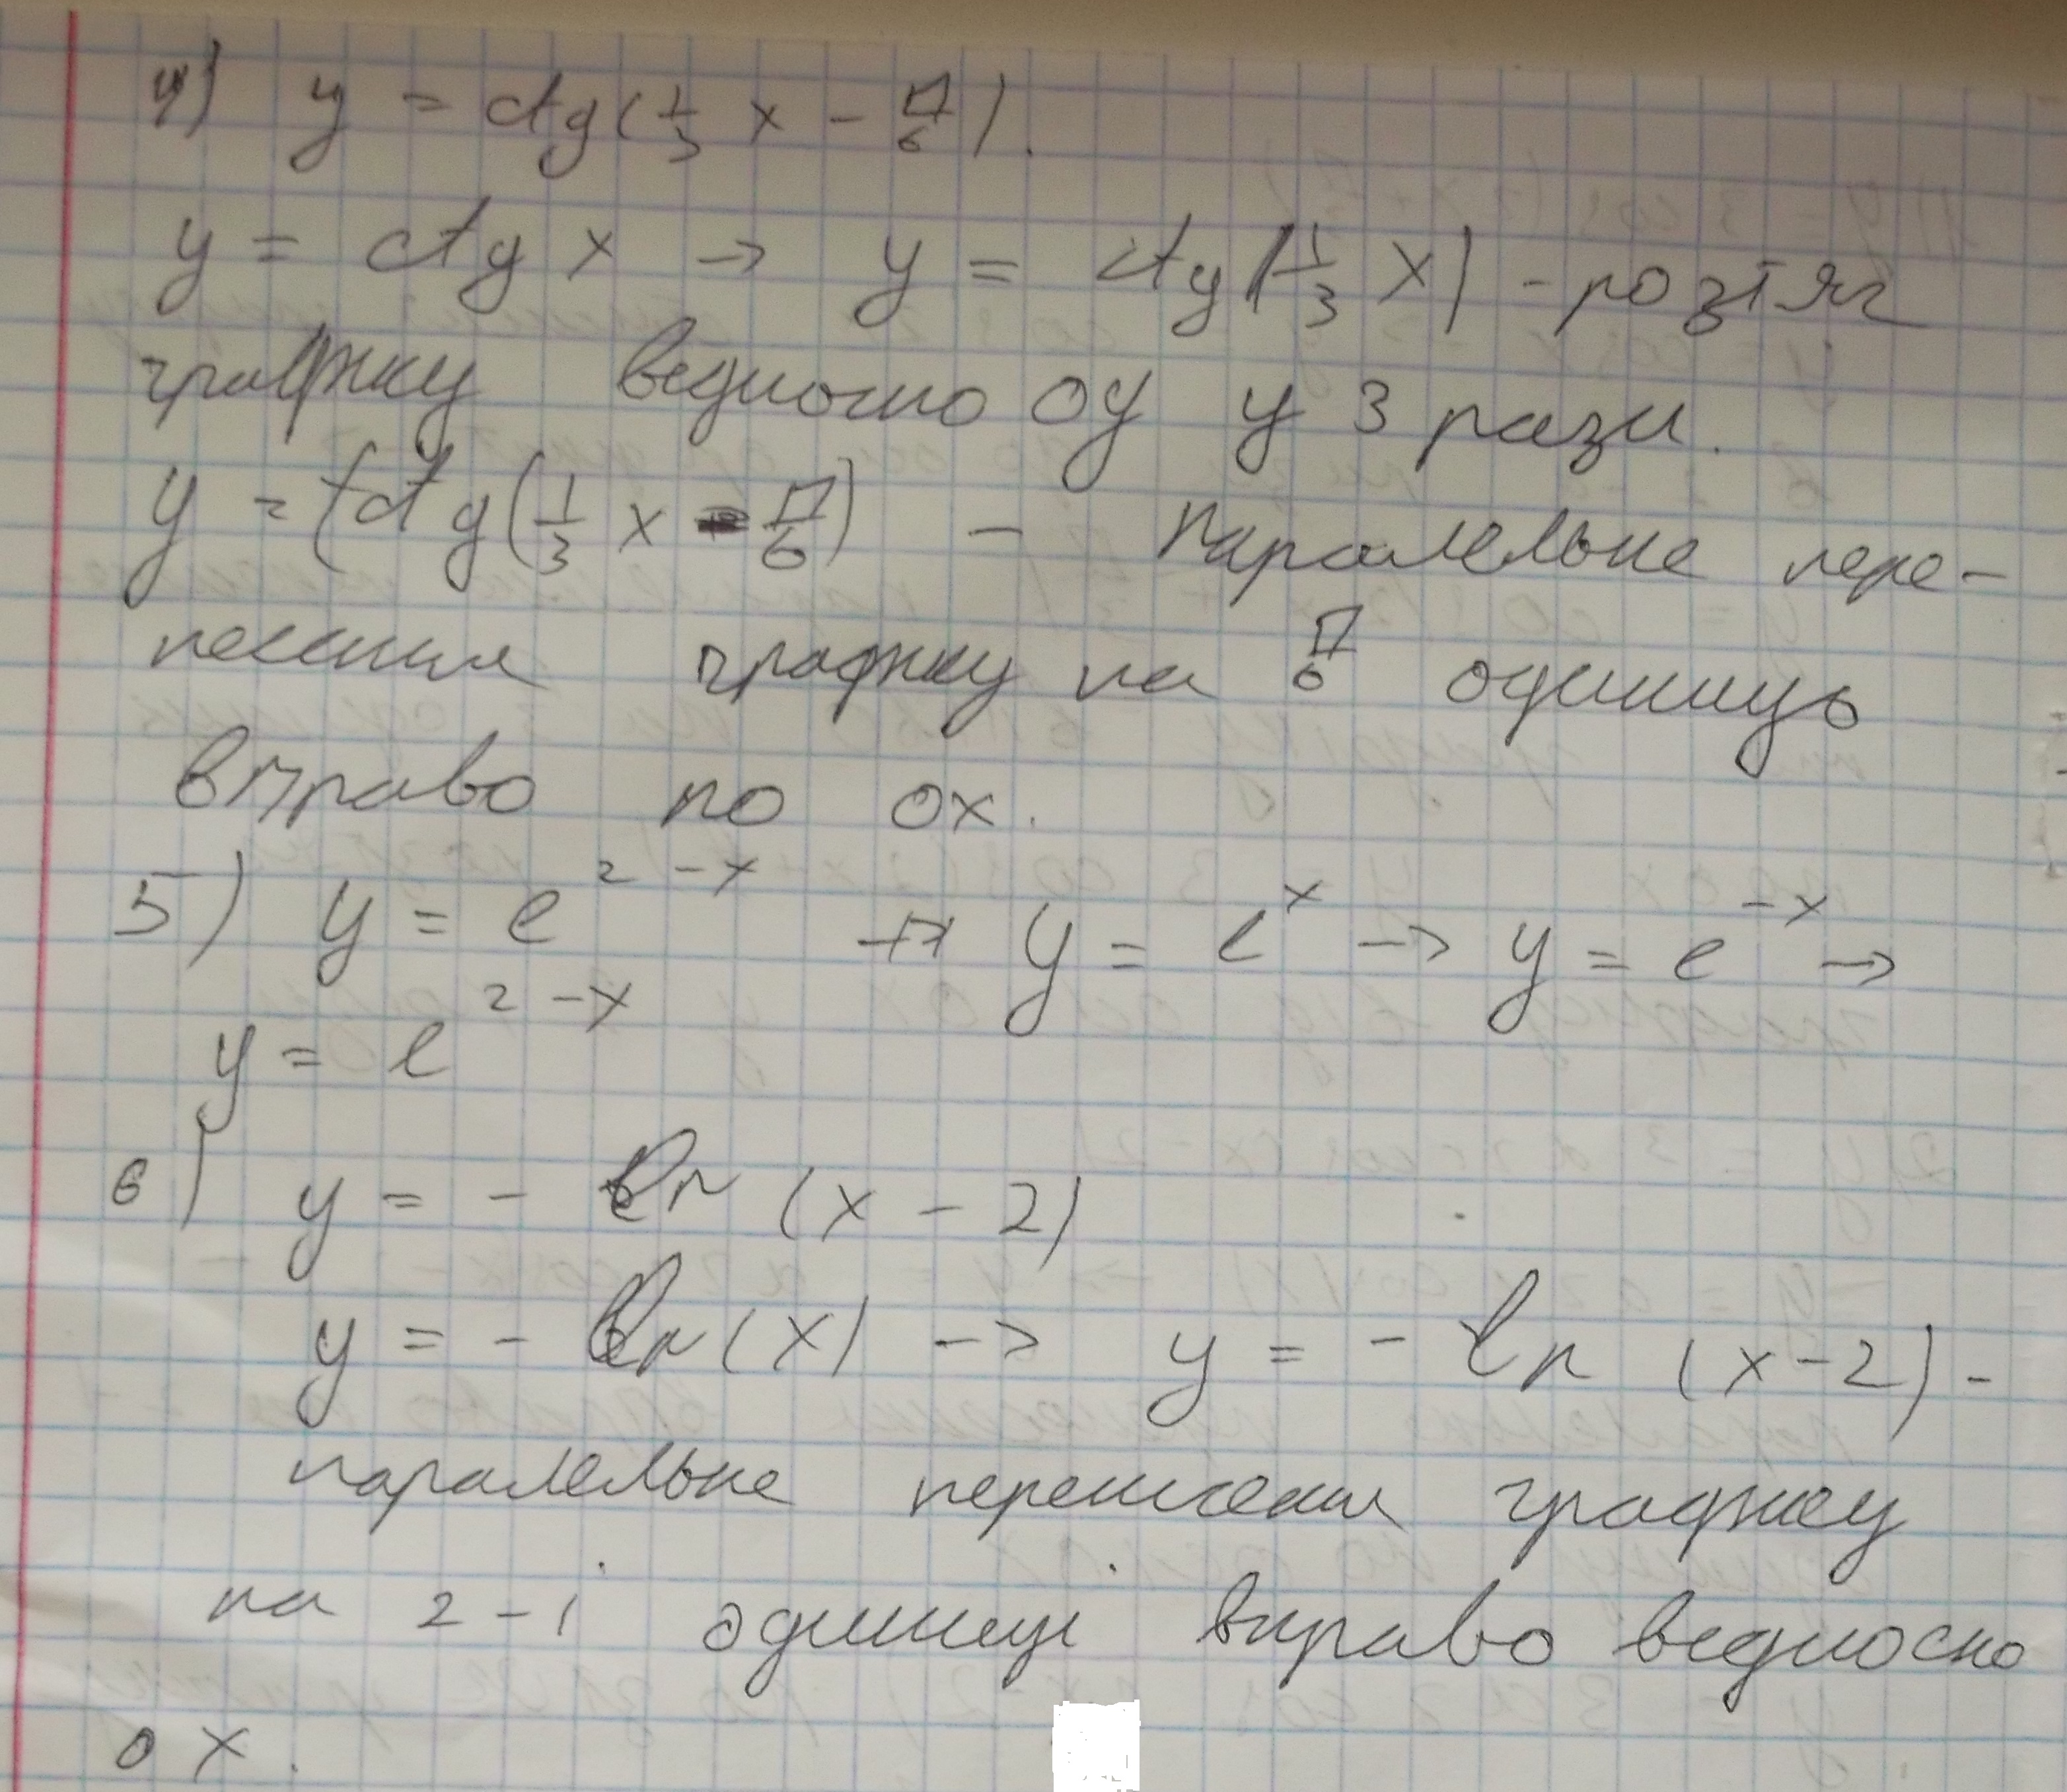 4) y = ctg(1/3 x - π/6).
y = ctg x → y = ctg(1/3 x) - розтяг
графіку ведносно oy у 3 рази.
y = (ctg(1/3 x - π/6) - паралельне пере-
несення графіку на π/6 одиниць
вправо по ox.
5) y = e^(2-x) → y = e^x → y = e^(-x) →
y = e^(2-x)
6) y = - ln (x - 2)
y = - ln(x) → y = - ln (x-2) -
паралельне перенесення графіку
на 2-і одиниці вправо ведносно
ox.